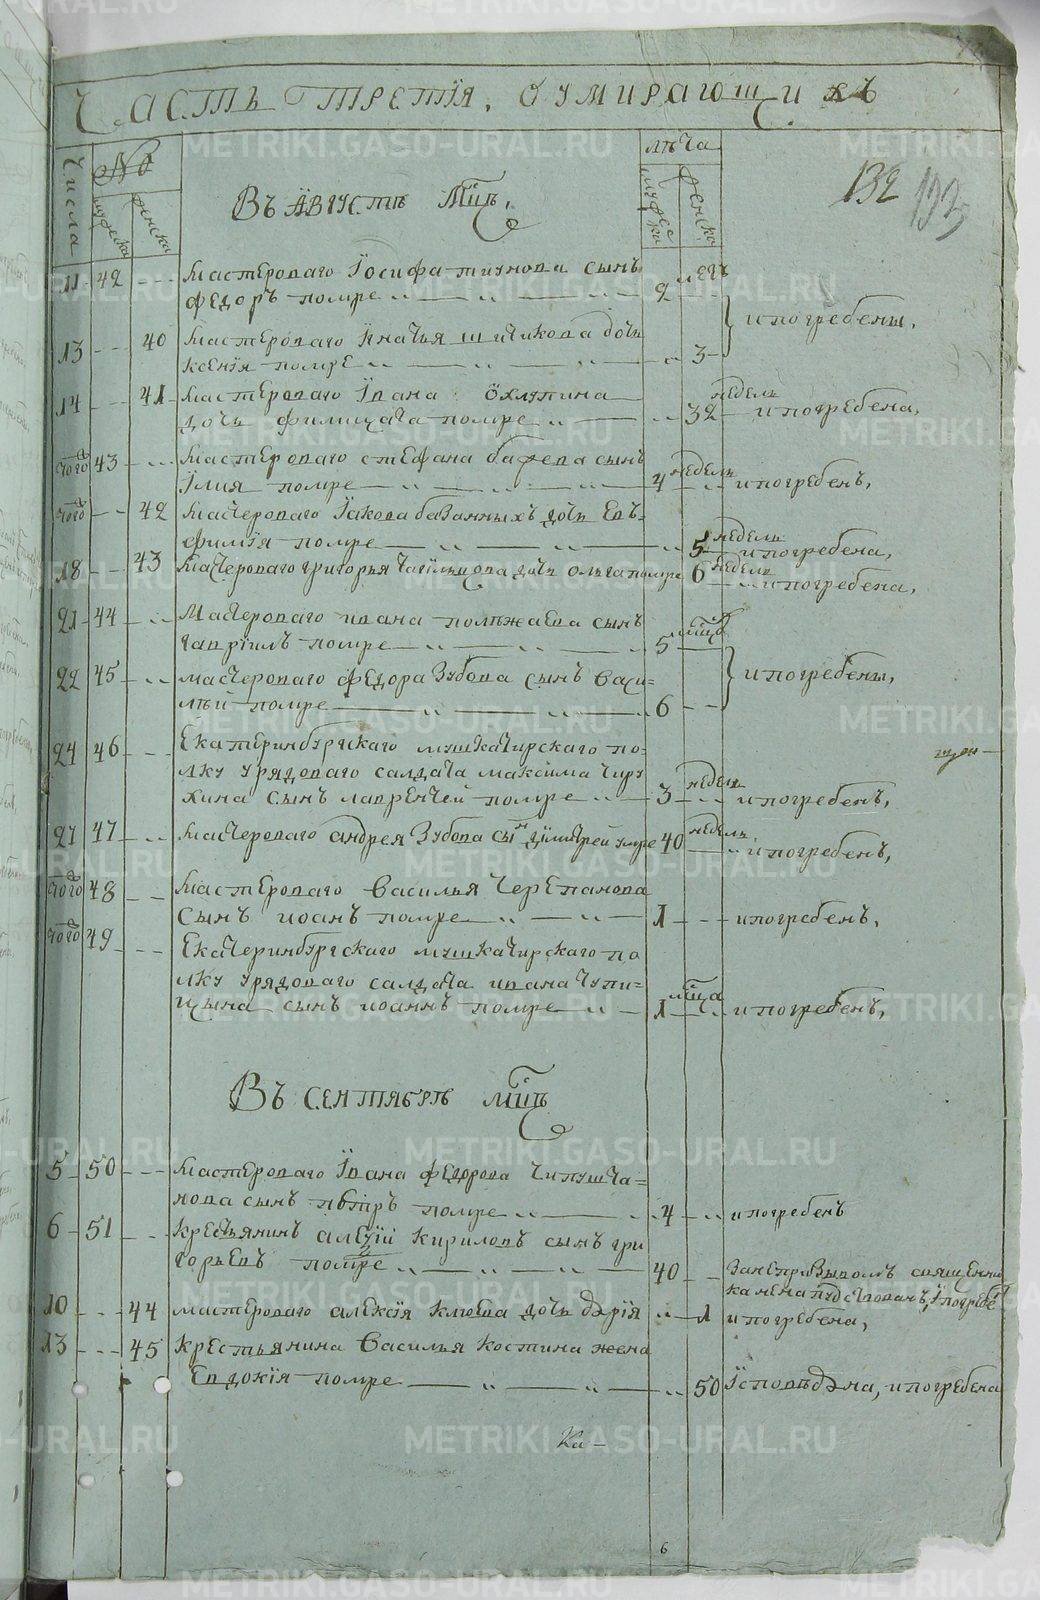 Часть третия, о умирающихъ
132
Числа
№
лѣта
Въ Августѣ мцѣ.
11 42 Мастероваго Іосифа сынъ
Федоръ помре 2 летъ
и погребены,
13 40 Мастероваго дочь
Ксенія помре 3
14 41 Мастероваго Івана Охлупина
дочь Филицата помре 32 недель и погребена,
того 43 Мастероваго Стефана сынъ
Илия помре 4 недель и погребенъ,
того 42 Мастероваго Іакова дочь Евъ=
фимія помре 5 недель и погребена,
18 43 Мастероваго Григорья дочь Ольга помре 6 недель и погребена,
21 44 Мастероваго Ивана Полѣжаева сынъ
Гавріилъ помре 5 мцовъ
и погребены,
22 45 Мастероваго Федора Зубова сынъ Васи=
лѣй помре 6
24 46 Екатеринбургскаго мушкатирскаго по=
лку урядоваго салдата Максима
сынъ Лаврентей помре 3 недель и погребенъ,
27 47 Мастероваго Андрея Зубова сынъ Дімитрей умре 40 недель и погребенъ,
того 48 Мастероваго Василья Черепанова
сынъ Иоанъ помре 1 и погребенъ,
того 49 Екатеринбургскаго мушкатирскаго по
лку урядоваго салдата Ивана Чупи=
цына сынъ Иоаннъ помре 1 мца и погребенъ,
Въ Сентябрѣ мцѣ
5 50 Мастероваго Івана Федорова
нова сынъ Пётръ помре 4 и погребенъ
6 51 Крестьянинъ Алексій Кириловъ сынъ Гри
горьевъ помре 40
и погребе
10 44 Мастероваго Алексія Клюева дочь Дарія 1 и погребена,
13 45 Крестьянина Василья Костина жена
Евдокія помре 50 Ісповѣдана, и погребена
Ка-
6
METRIKI.GASO-URAL.RU